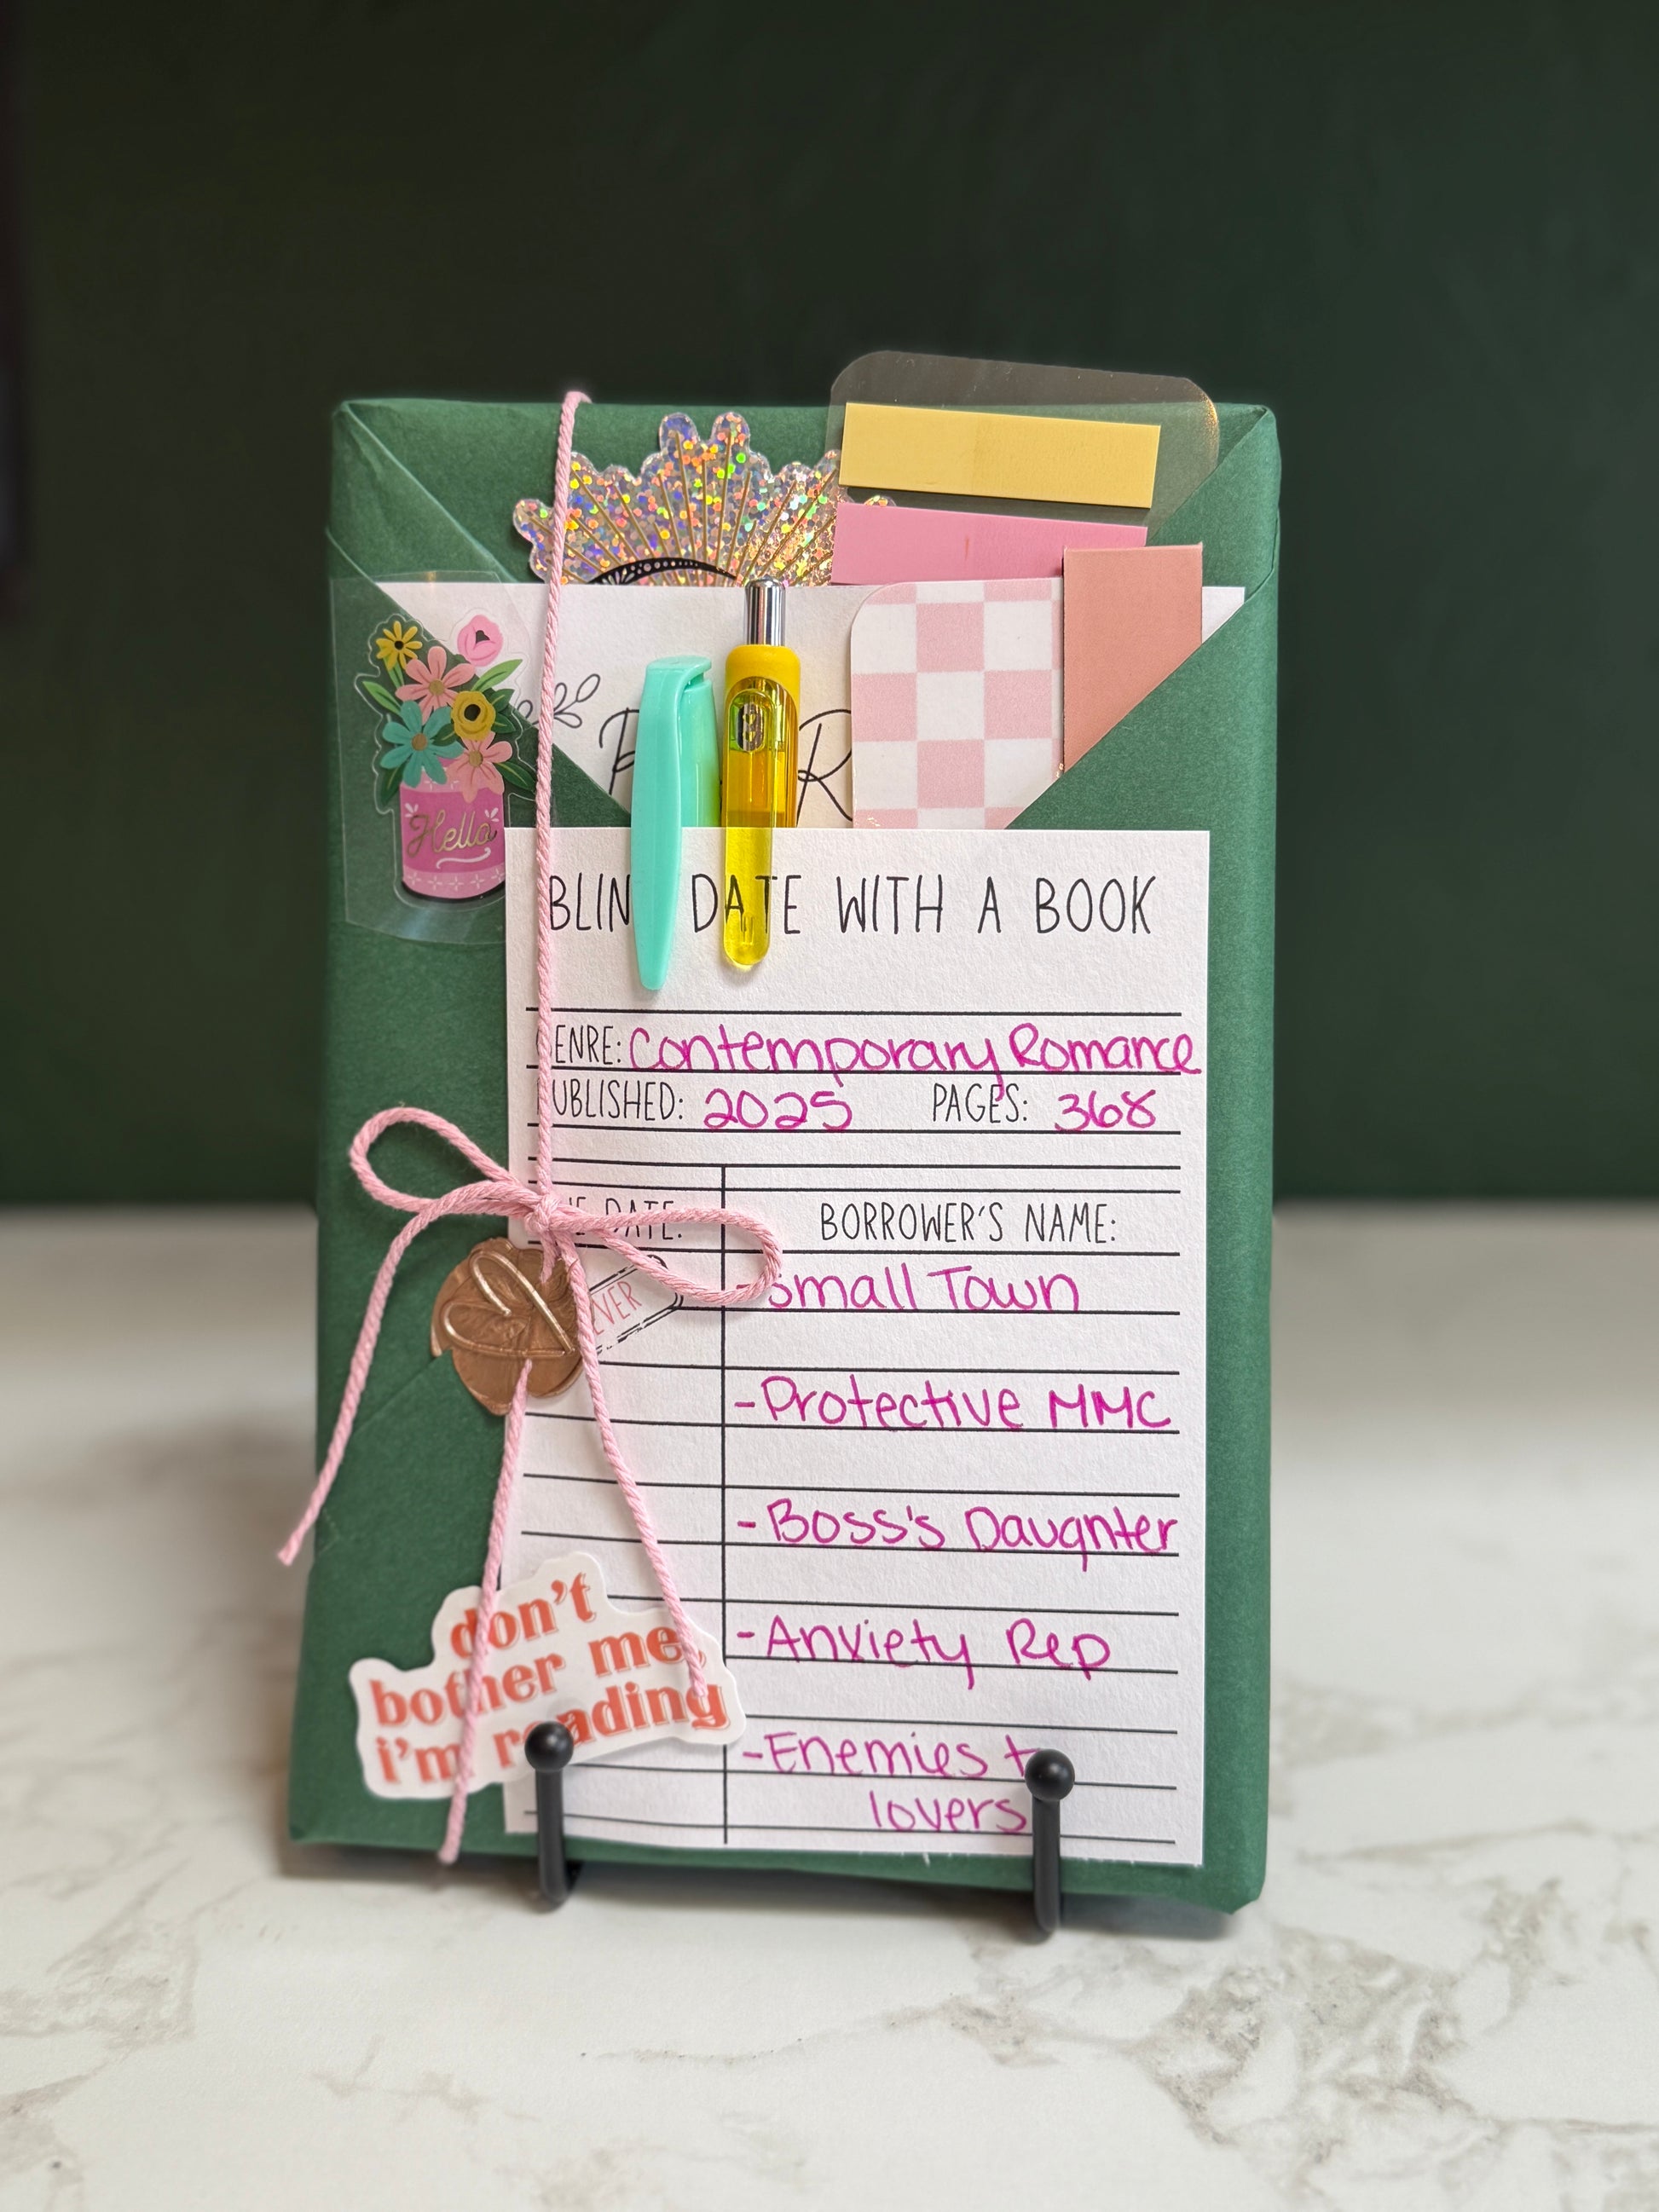 Hello
BLIN DATE WITH A BOOK
ENRE: Contemporary Romance
UBLISHED: 2025 PAGES: 368
E DATE: BORROWER'S NAME:
EVER
-Small Town
-Protective MMC
-Boss's Daughter
-Anxiety Rep
-Enemies t
lovers
don't
bother me,
i'm reading